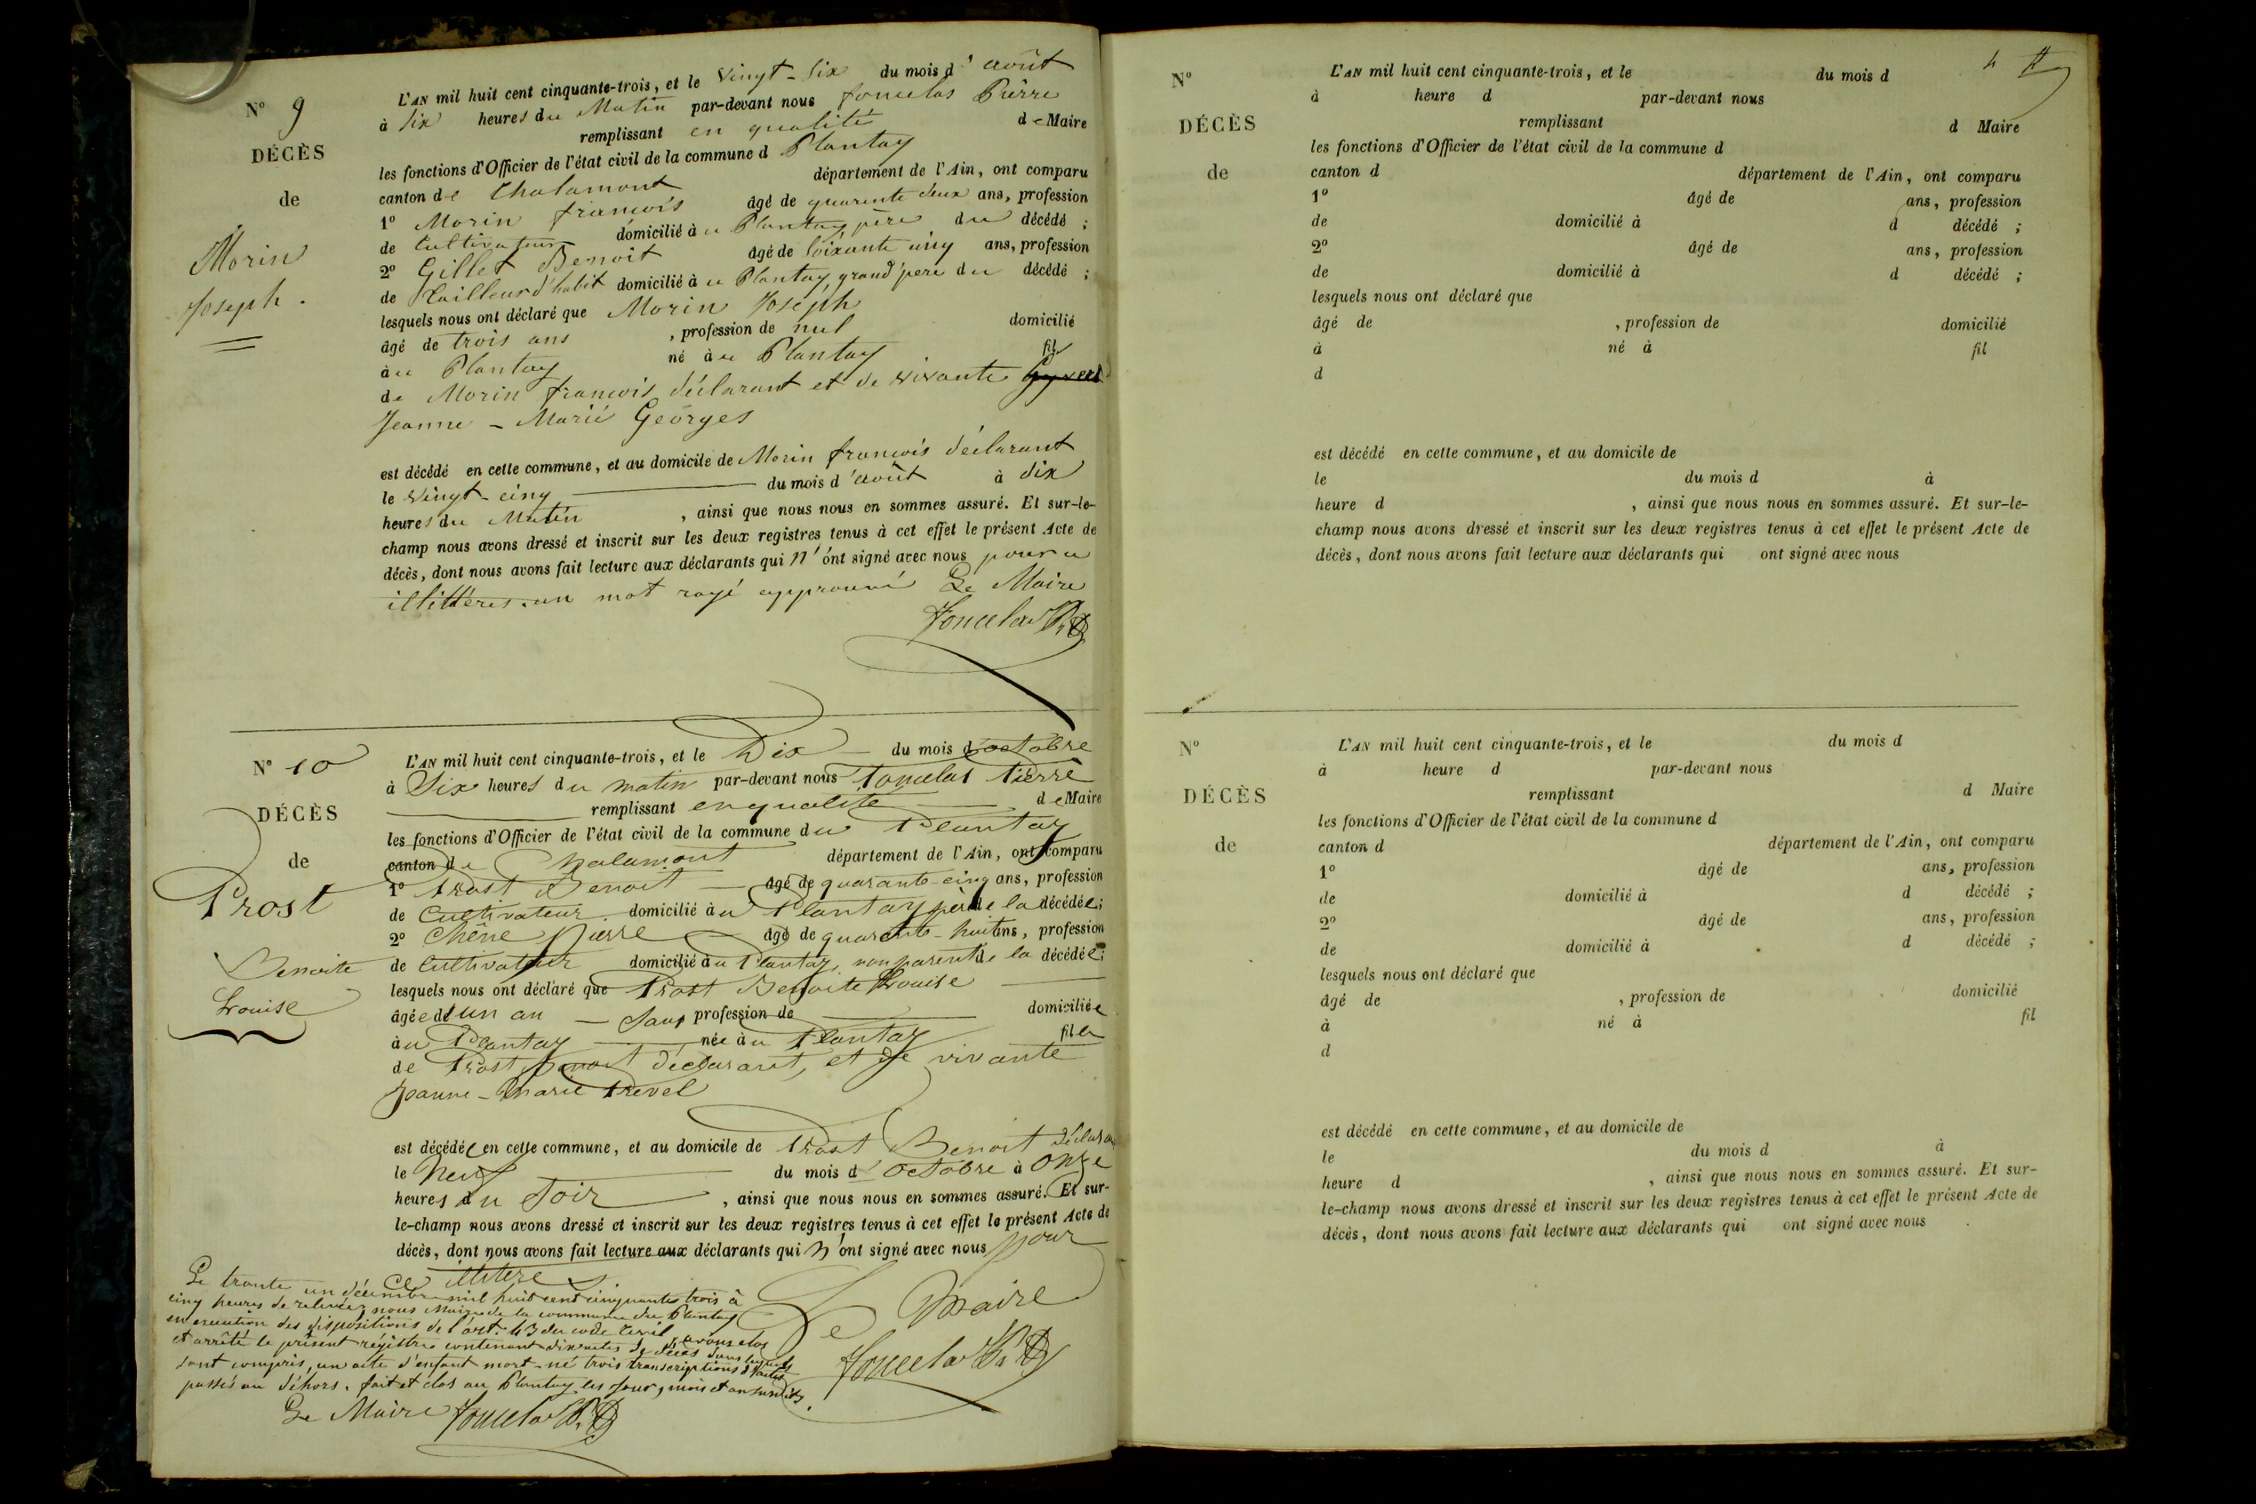 N° 9
DÉCÈS
de
Morin
Joseph.
L'AN mil huit cent cinquante-trois, et le vingt-six du mois d'août
à six heures du Matin par-devant nous Joncelas Pierre
remplissant en qualité de Maire
les fonctions d'Officier de l'état civil de la commune d Plantay
canton de Chalamont département de l'Ain, ont comparu
1° Morin francois âgé de quarente deux ans, profession
de Cultivateur domicilié à u Plantay père du décédé ;
2° Gillet Benoit âgé de soixante cinq ans, profession
de tailleur d'habit domicilié à u Plantay, grand'pere du décédé ;
lesquels nous ont déclaré que Morin Joseph
âgé de trois ans , profession de nul domicilié
à u Plantay né à u Plantay fil
de Morin francois déclarant et de vivante
Jeanne - Marie Georges
est décédé en cette commune, et au domicile de Morin francois déclarant
le vingt-cinq du mois d'août à dix
heures du Matin , ainsi que nous nous en sommes assuré. Et sur-le-
champ nous avons dressé et inscrit sur les deux registres tenus à cet effet le présent Acte de
décès, dont nous avons fait lecture aux déclarants qui n'ont signé avec nous pour ce
illitères. un mot rayé approuvé Le Maire
Joncelas
N° 10
DÉCÈS
de
Prost
Benoite
Louise
L'AN mil huit cent cinquante-trois, et le Dix du mois d'octobre
à Six heures du matin par-devant nous Joncelas Pierre
remplissant en qualité de Maire
les fonctions d'Officier de l'état civil de la commune du Plantay
canton de Chalamont département de l'Ain, ont comparu
1° Prost Benoit âgé de quarante-cinq ans, profession
de Cultivateur domicilié à u Plantay père de la décédée ;
2° Chêne Pierre âgé de quarante-huit ans, profession
de Cultivateur domicilié à u Plantay, non parent de la décédée ;
lesquels nous ont déclaré que Prost Benoite Louise
âgée d'un an Sans profession de domiciliée
à u Plantay née à u Plantay fille
de Prost Benoit déclarant, et de vivante
Jeanne-Marie Prevel
est décédée en cette commune, et au domicile de Prost Benoit déclarant
le Neuf du mois d'octobre à onze
heures du Soir , ainsi que nous nous en sommes assuré. Et sur-
le-champ nous avons dressé et inscrit sur les deux registres tenus à cet effet le présent Acte de
décès, dont nous avons fait lecture aux déclarants qui n'ont signé avec nous pour
ce illitéres
Le Maire
Joncelas
Le trente un décembre mil huit cent cinquante trois à
cinq heures de relevée, nous Maire de la commune du Plantay
en execution des dispositions de l'art. 43 du code civil, avons clos
et arrêté le présent régistre contenant dix actes de décès dans lesquels
sont compris, un acte d'enfant mort-né trois transcriptions d'actes
passés au déhors. fait et clos au Plantay les jour, mois et an susdits.
Le Maire Joncelas
4
N°
DÉCÈS
de
L'AN mil huit cent cinquante-trois, et le du mois d
à heure d par-devant nous
remplissant d Maire
les fonctions d'Officier de l'état civil de la commune d
canton d département de l'Ain, ont comparu
1° âgé de ans, profession
de domicilié à d décédé ;
2° âgé de ans, profession
de domicilié à d décédé ;
lesquels nous ont déclaré que
âgé de , profession de domicilié
à né à fil
d
est décédé en cette commune, et au domicile de
le du mois d à
heure d , ainsi que nous nous en sommes assuré. Et sur-le-
champ nous avons dressé et inscrit sur les deux registres tenus à cet effet le présent Acte de
décès, dont nous avons fait lecture aux déclarants qui ont signé avec nous
N°
DÉCÈS
de
L'AN mil huit cent cinquante-trois, et le du mois d
à heure d par-devant nous
remplissant d Maire
les fonctions d'Officier de l'état civil de la commune d
canton d département de l'Ain, ont comparu
1° âgé de ans, profession
de domicilié à d décédé ;
2° âgé de ans, profession
de domicilié à d décédé ;
lesquels nous ont déclaré que
âgé de , profession de domicilié
à né à fil
d
est décédé en cette commune, et au domicile de
le du mois d à
heure d , ainsi que nous nous en sommes assuré. Et sur-
le-champ nous avons dressé et inscrit sur les deux registres tenus à cet effet le présent Acte de
décès, dont nous avons fait lecture aux déclarants qui ont signé avec nous